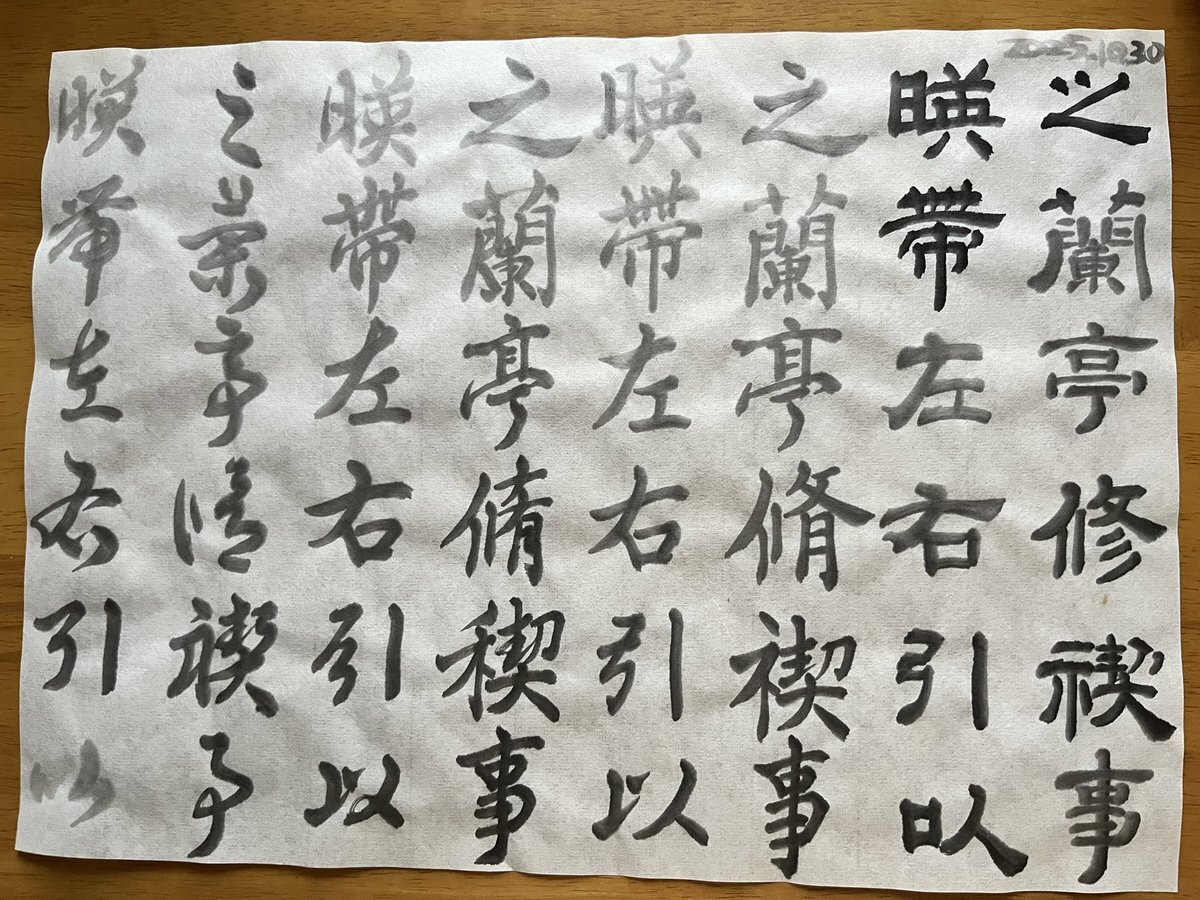 2025.10.30
之蘭亭修禊事
暎帶左右引以
之蘭亭脩禊事
暎帶左右引以
之蘭亭脩稧事
暎帶左右引以
之蘭亭脩禊事
暎帶左右引以